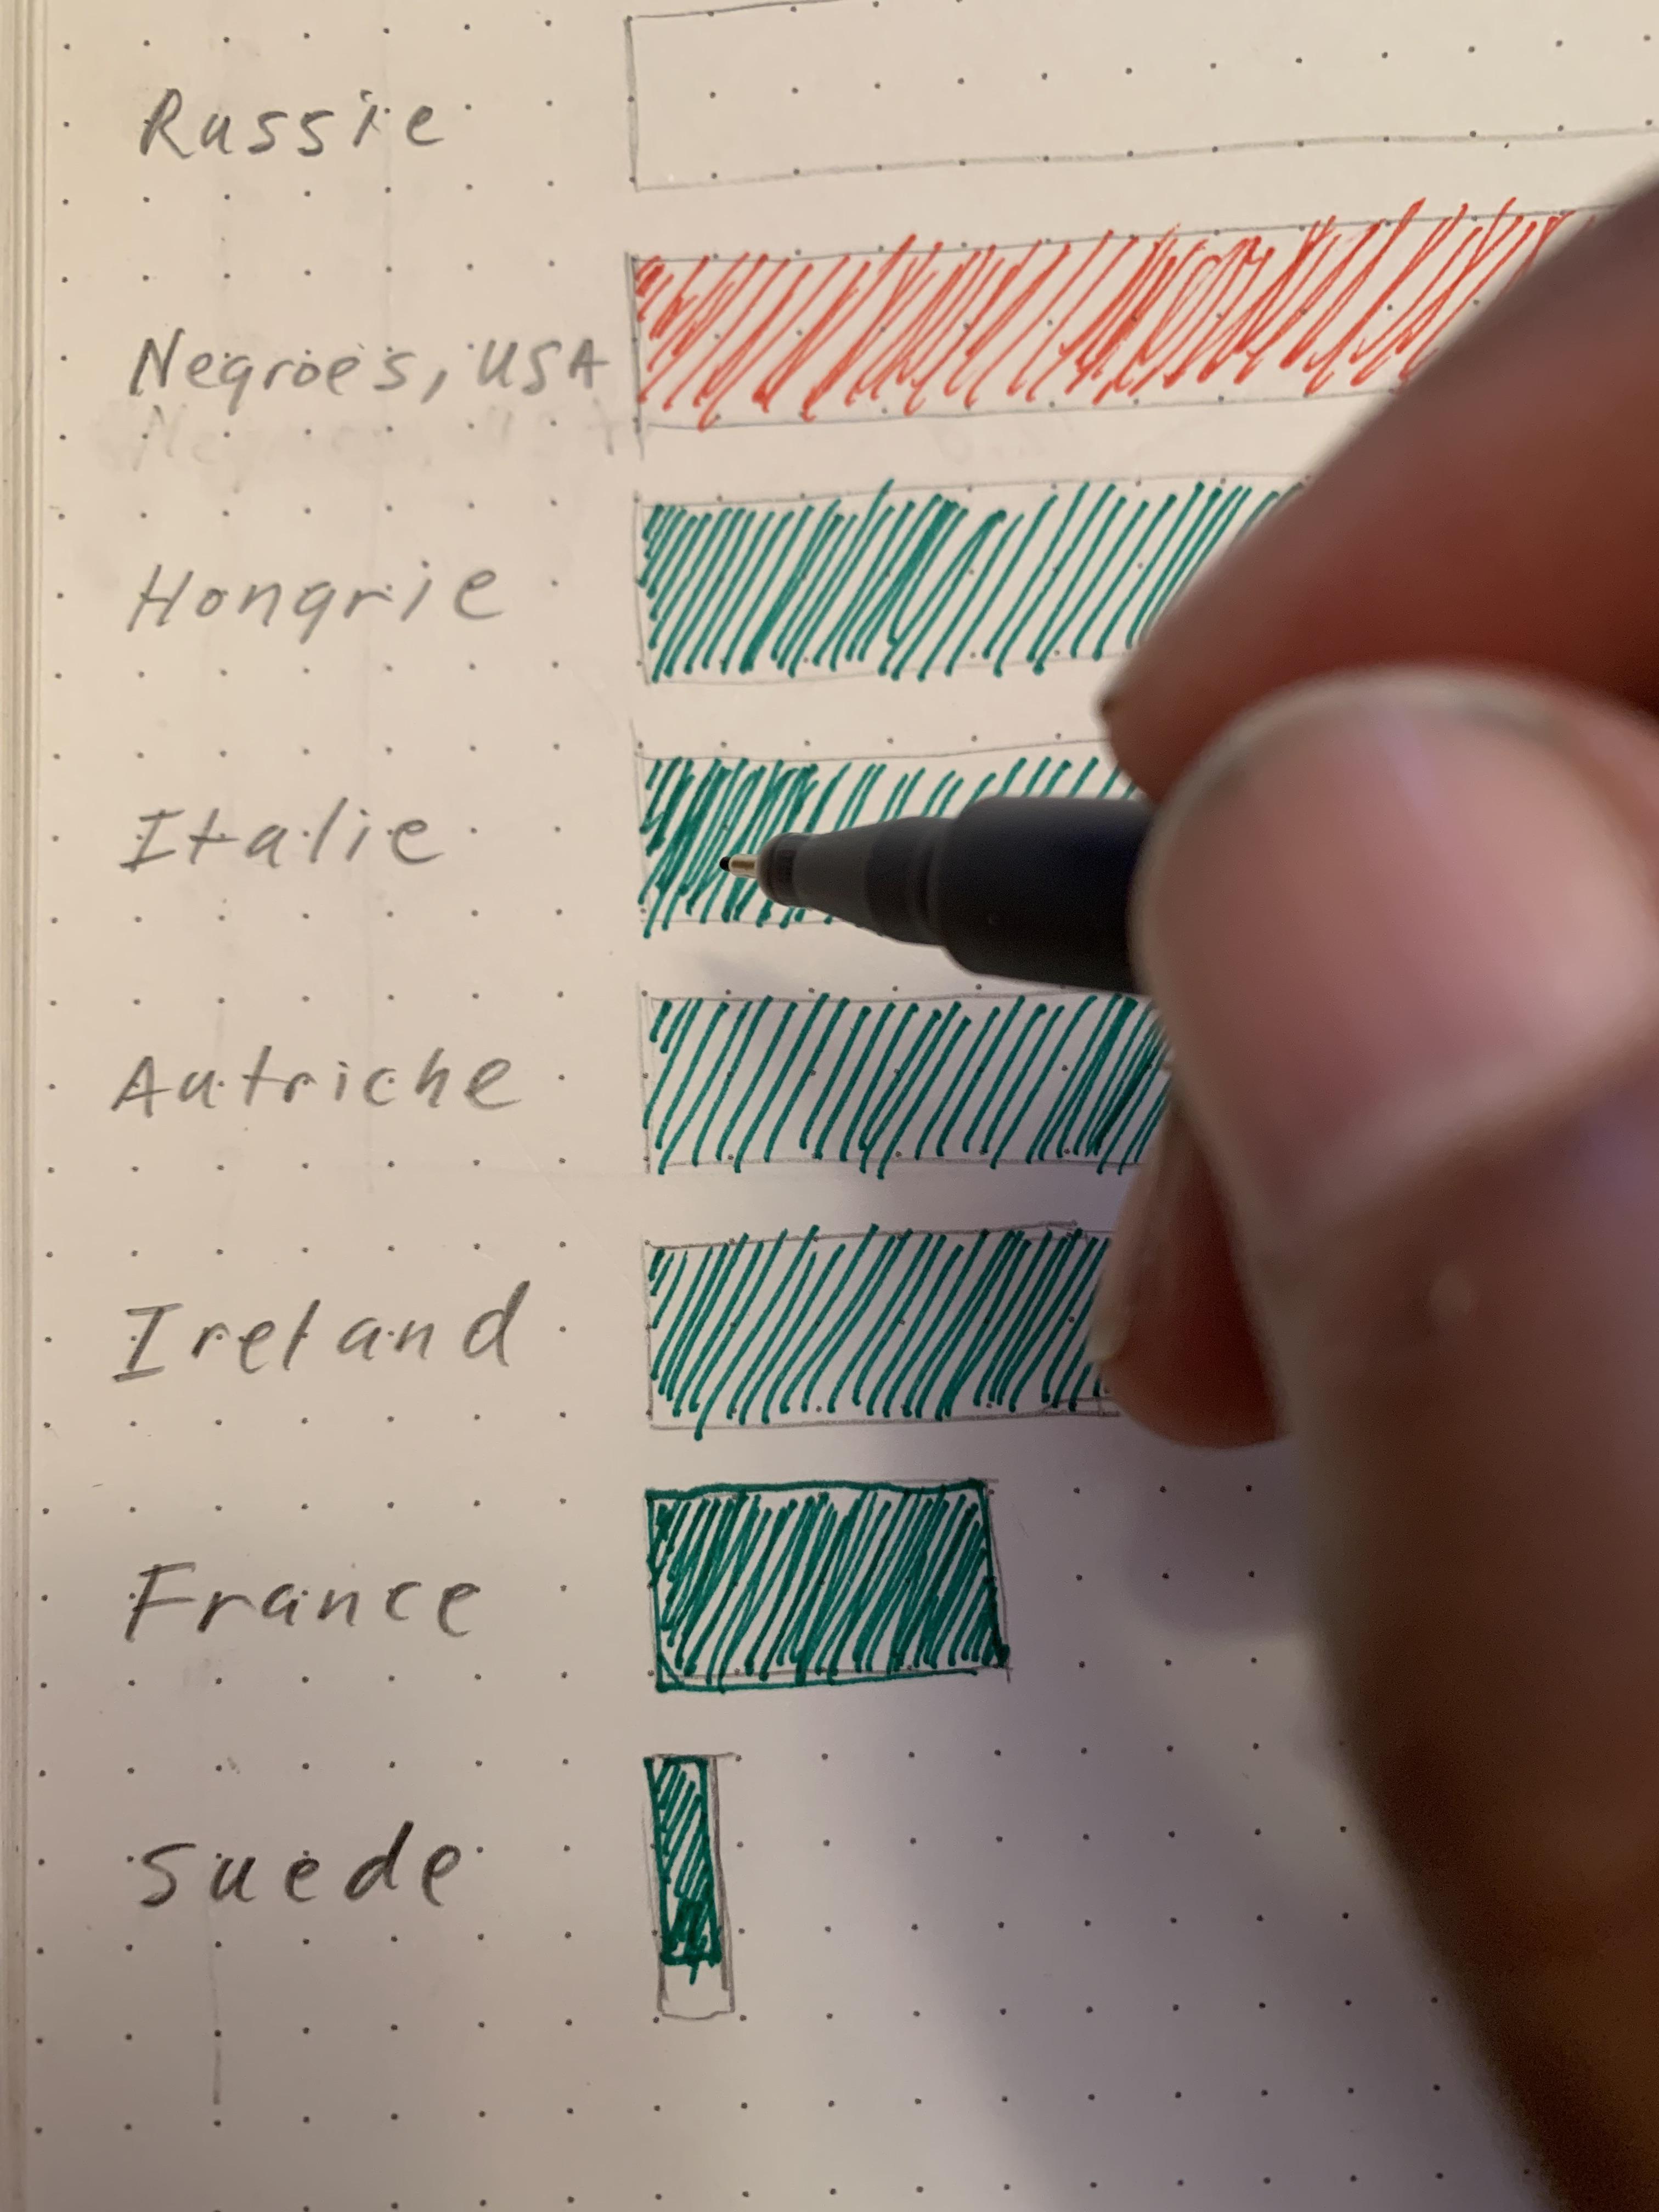 Russie
Negroes, USA
Hongrie
Italie
Autriche
Ireland
France
Suede